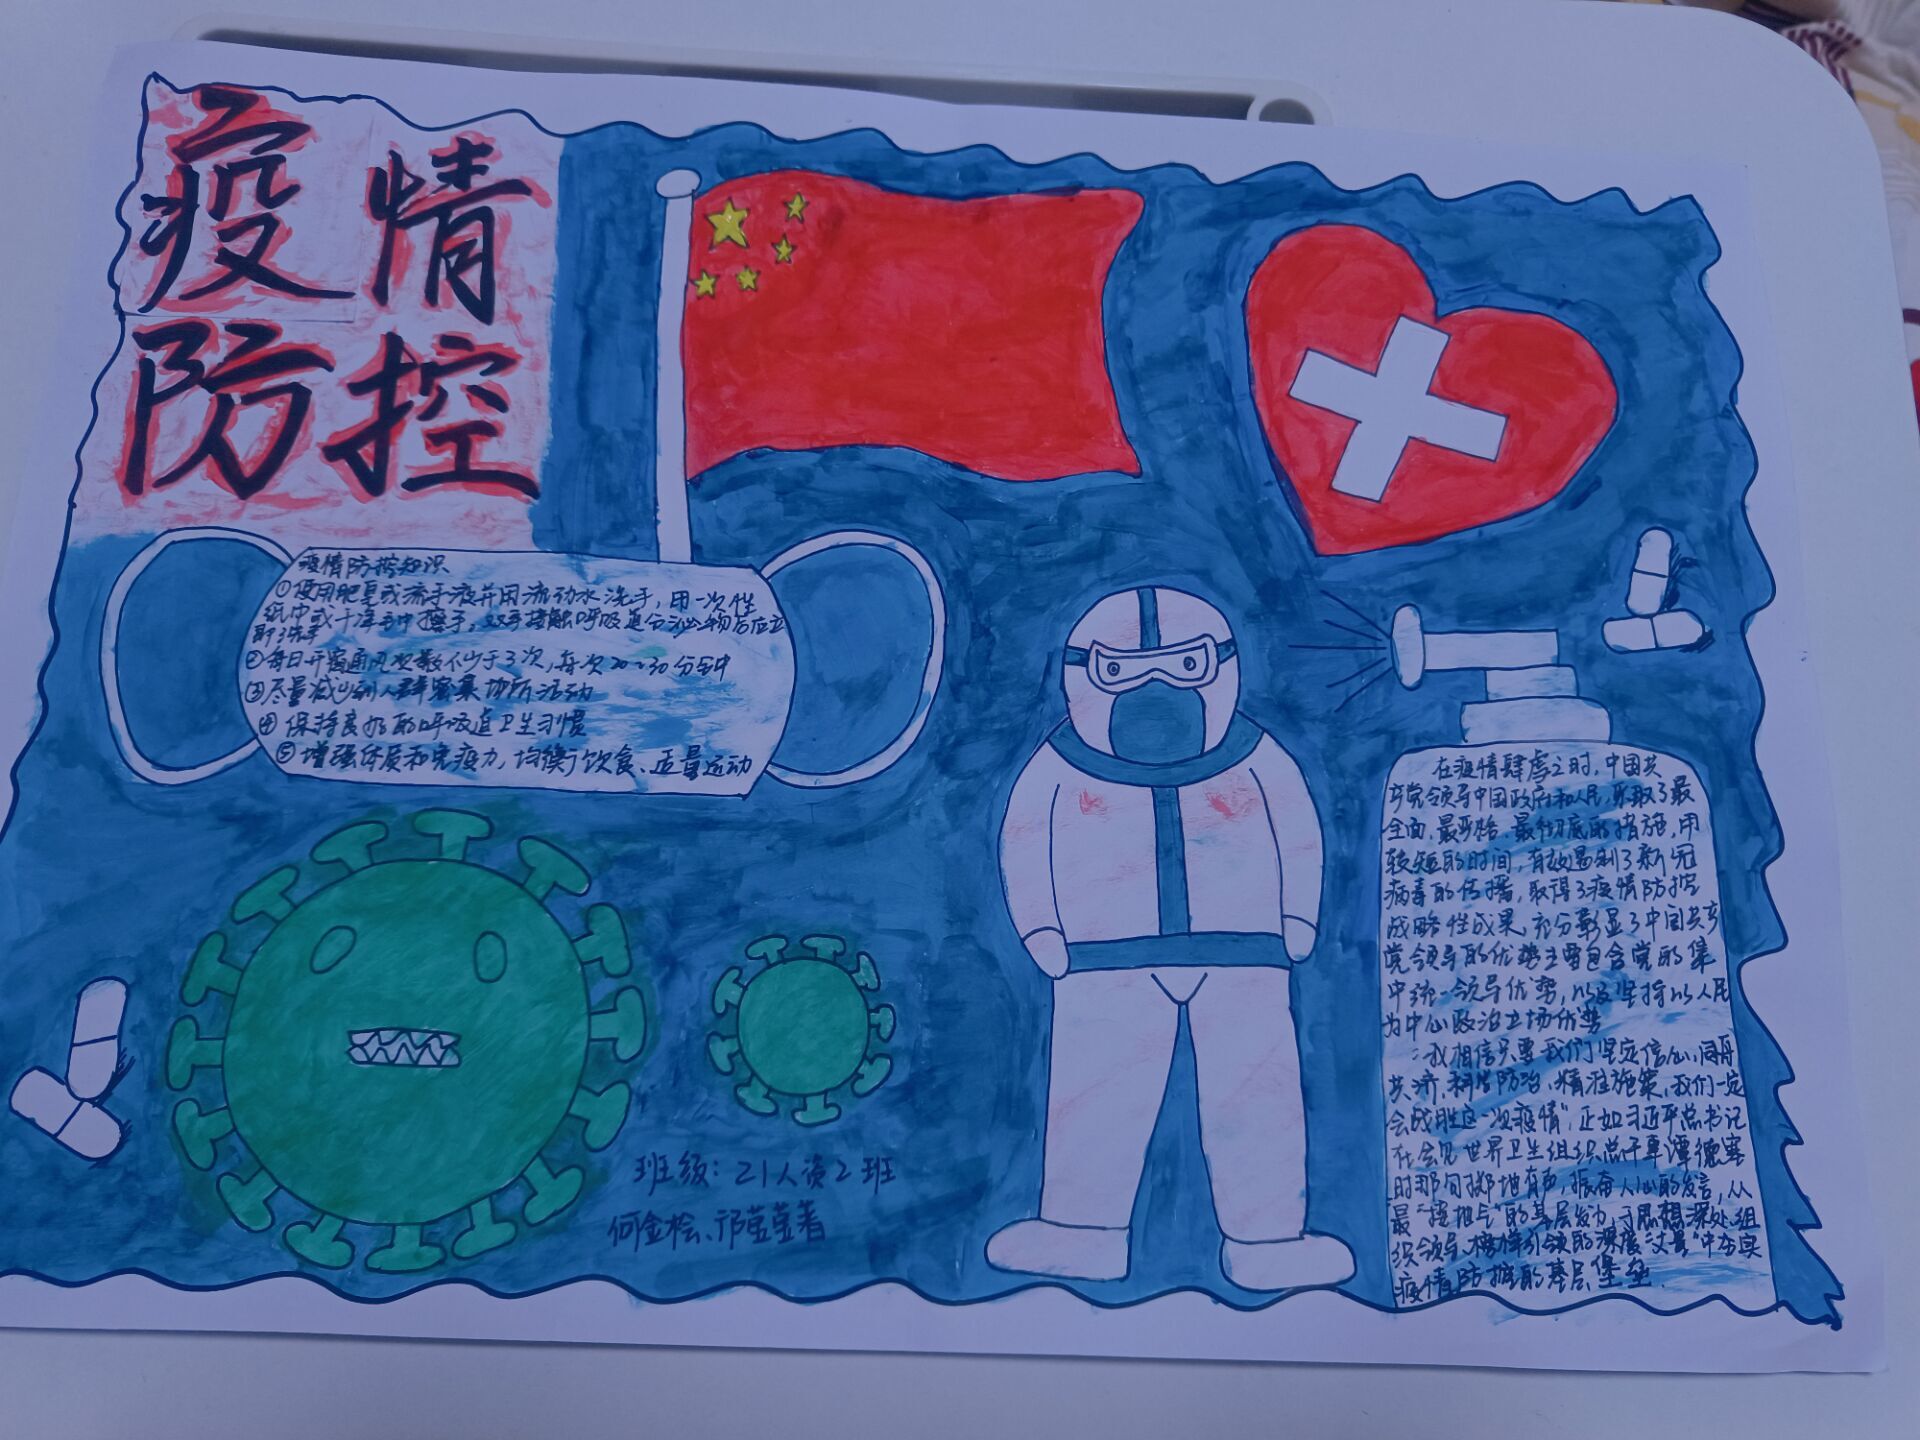 疫情
防控
疫情防控知识
①使用肥皂或流手液并用流动水洗手，用一次性
纸巾或干净毛巾擦手，双手接触呼吸道分泌物后应立
即洗手
②每日开窗通风次数不少于3次，每次20~30分钟
③尽量减少到人群密集场所活动
④保持良好的呼吸道卫生习惯
⑤增强体质和免疫力，均衡饮食、适量运动
在疫情肆虐之时，中国共
产党领导中国政府和人民，采取了最
全面、最严格、最彻底的措施，用
较短的时间，有效遏制了新冠
病毒的传播，取得了疫情防控
战略性成果，充分彰显了中国共产
党领导的优势主要包含党的集
中统一领导优势，以及坚持以人民
为中心政治立场优势
"我相信只要我们坚定信心、同舟
共济，科学防治，精准施策，我们一定
会战胜这一次疫情"，正如习近平总书记
在会见世界卫生组织总干事谭德塞
时那句掷地有声，振奋人心的发言，从
最"接地气"的基层发力，于思想深处组
织领导、榜样引领的深度
疫情防控的基层堡垒.
班级：21人资2班
何金桧、邝莹莹着